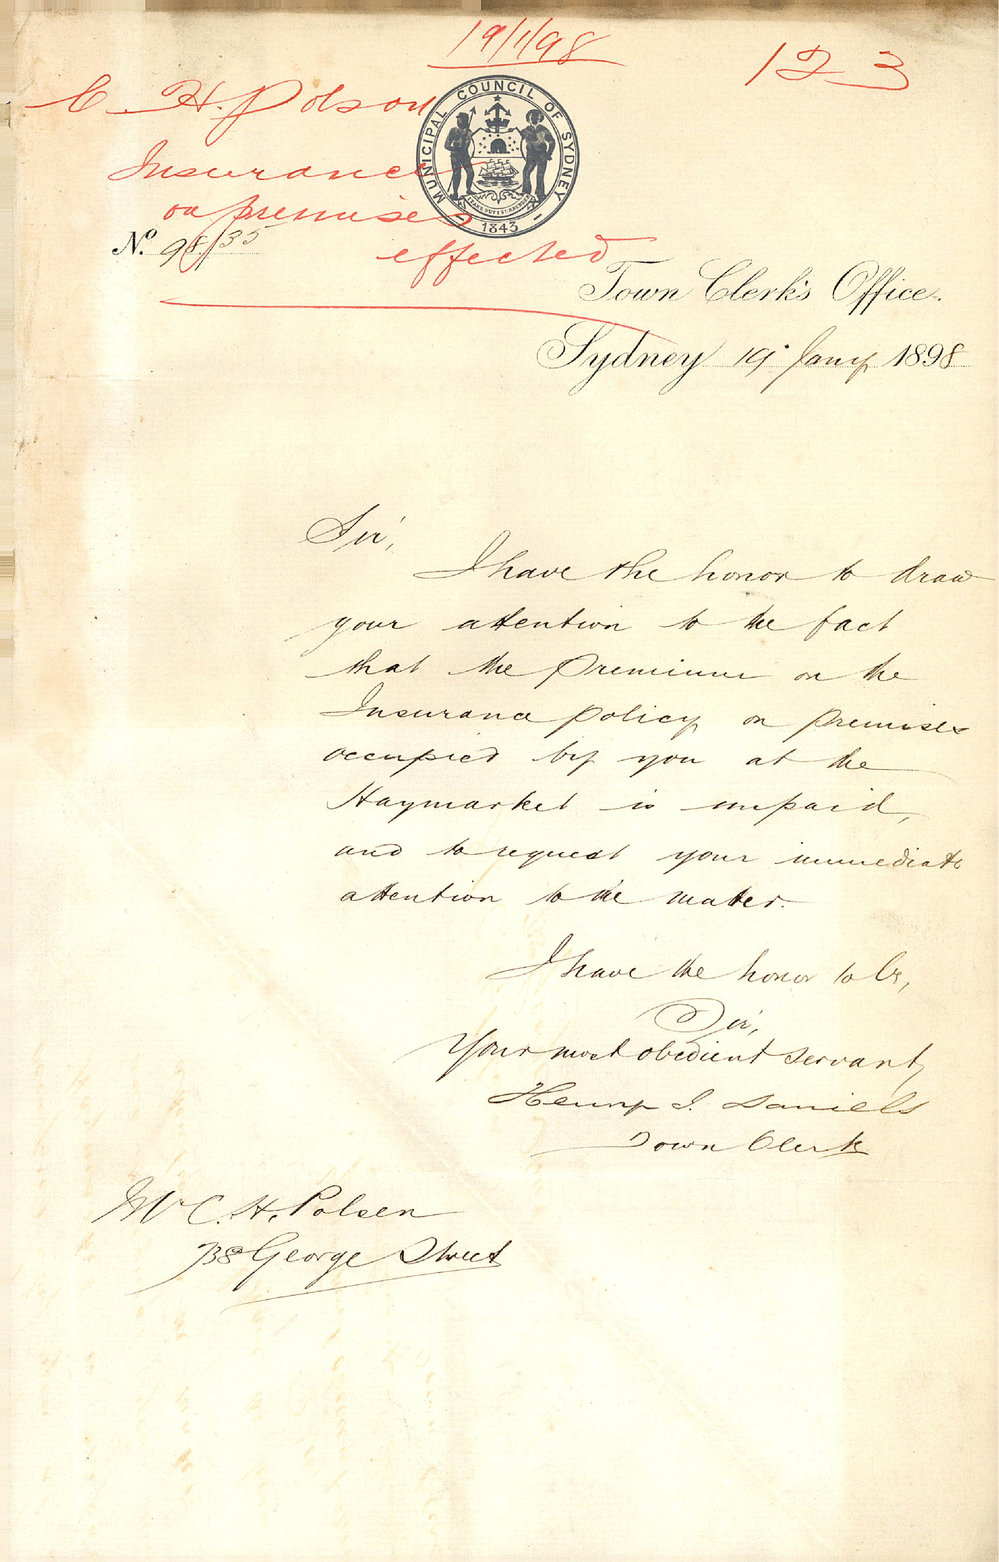 19/1/98
123
C. H. Polson
Insurance
on premises
effected
MUNICIPAL COUNCIL OF SYDNEY
1843
No. 98/35
Town Clerk's Office.
Sydney 19. Jany 1898
Sir,
I have the honor to draw
your attention to the fact
that the Premium on the
Insurance policy on premises
occupied by you at the
Haymarket is unpaid,
and to request your immediate
attention to the matter.
I have the honor to be,
Sir,
Your most obedient servant,
Henry J. Daniels
Town Clerk
Mr C. H. Polsen
738 George Street